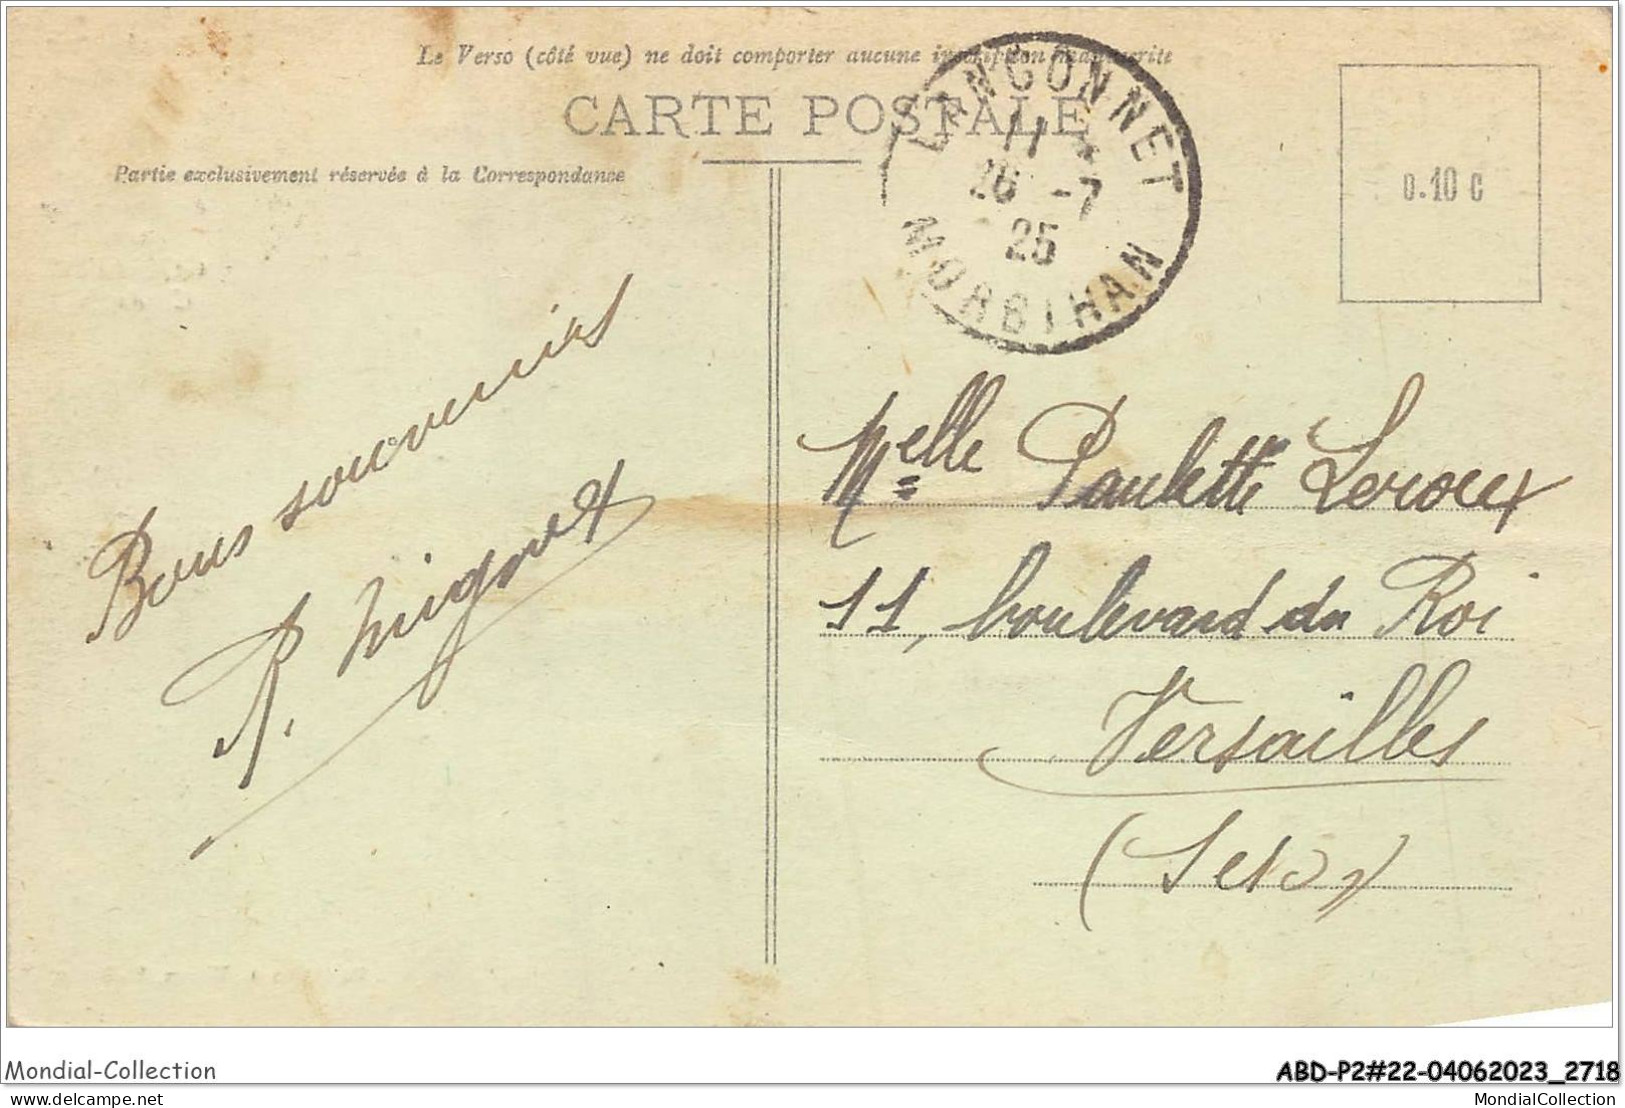 Le Verso (côté vue) ne doit comporter aucune inscription manuscrite
CARTE POSTALE
Partie exclusivement réservée à la Correspondance
LANGONNET
11
26 -7
25
MORBIHAN
0.10 C
Bons souvenirs
P. Mignot
Melle Paulette Leroux
11, boulevard du Roi
Versailles
(S et O)
Mondial-Collection
ABD-P2#22-04062023_2718
Mondial-Collection.net
MondialCollection